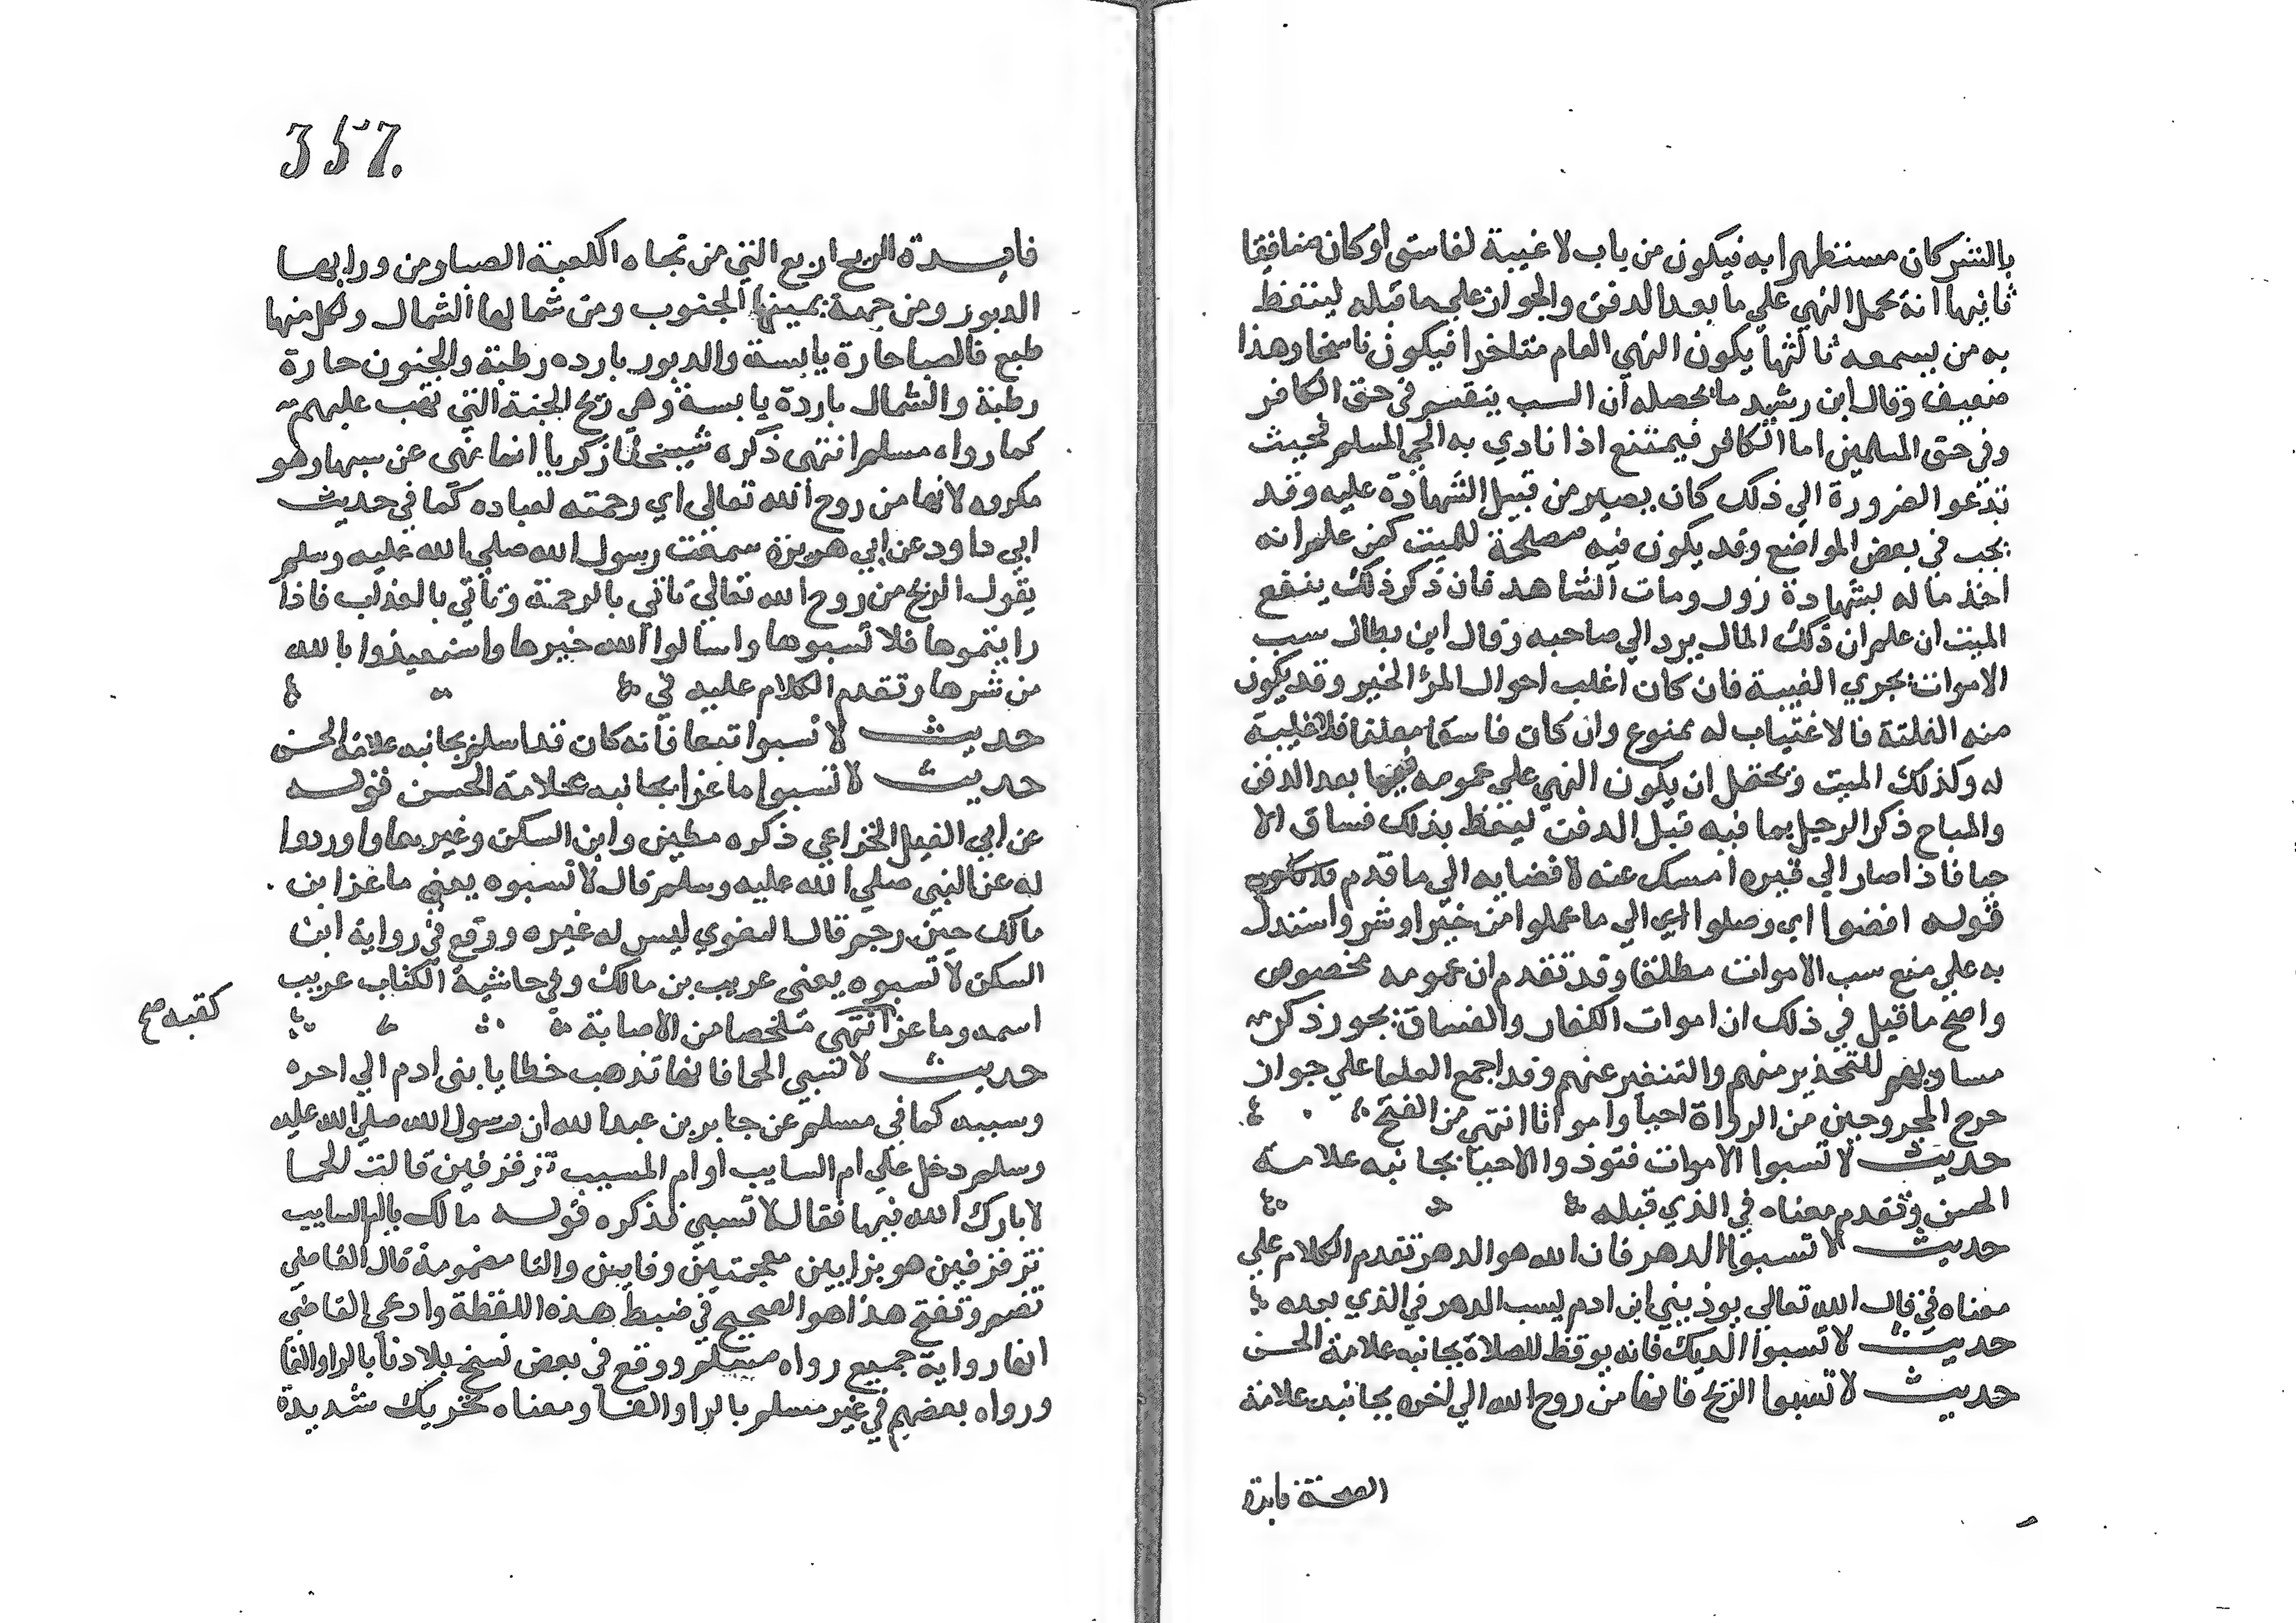 بالشر كان مستظهرا به فيكون من باب لا غيبة لفاسق او كان منافقا
ثانيها انه يحمل النهي علي ما بعد الدفن والجواز علي ما قبله ليتعظ
به من يسمعه ثالثها يكون النهي العام متاخرا فيكون ناسخا وهذا
ضعيف وقال ابن رشيد ما محصله ان السب ينقسم في حق الكافر
وفي حق المسلمين اما الكافر فيمتنع اذا نادي به الحي المسلم فحيث
تدعو الضرورة الي ذلك كان يصير من قبيل الشهادة عليه وقد
يجب في بعض المواضع وقد يكون فيه مصلحة للميت كمن علم انه
اخذ ماله بشهادة زور ومات الشاهد فان ذكر ذلك ينفع
الميت ان علم ان ذلك المال يرد الي صاحبه وقال ابن بطال سب
الاموات يجري الغيبة فان كان اغلب احوال المرا الخير وقد يكون
منه الفلتة فالاغتياب له ممنوع وان كان فاسقا معلنا فلا غيبة
له وكذلك الميت ويحتمل ان يكون النهي علي عمومه فيما بعد الدفن
والمباح ذكر الرجل بما فيه قبل الدفن ليتعظ بذلك فساق الا
حيا فاذا صار الي قبره امسك عنه لافضايه الي ما قدم
قوله افضوا اي وصلوا الي ما عملوا من خير او شر واستدل
به علي منع سب الاموات مطلقا وقد تقدم ان عمومه مخصوص
واصح ما قيل في ذلك ان اموات الكفار والفساق يجوز ذكر
مساويهم للتحذير منهم والتنفير عنهم وقد اجمع العلما علي جواز
جرح المجروحين من الرواة احيا وامواتا انتهي من الفتح
حديث لا تسبوا الاموات فتوذوا الاحيا بجانبه علامة
الحسن وتقدم معناه في الذي قبله
حديث لا تسبوا الدهر فان الله هو الدهر تقدم الكلام علي
معناه في قال الله تعالي يوذيني ابن ادم يسب الدهر في الذي بعده
حديث لا تسبوا الديك فانه يوقظ للصلاة بجانبه علامة الحسن
حديث لا تسبوا الريح فانها من روح الله الي اخره بجانبه علامة
الصحة فايدة
357.
فايدة الريح اربع التي من تجاه الكعبة الصبا ومن ورايها
الدبور ومن جهة يمينها الجنوب ومن شمالها الشمال ولكل منها
طبع فالصبا حارة يابسة والدبور بارده رطبة والجنوب حارة
رطبة والشمال باردة يابسة وهي ريح الجنة التي تهب عليهم
كما رواه مسلم انتهي ذكره شيخنا زكريا انما نهي عن سبها وهو
مكروه لانها من روح الله تعالي اي رحمته لعباده كما في حديث
ابي داود عن ابي هريرة سمعت رسول الله صلي الله عليه وسلم
يقول الريح من روح الله تعالي تاتي بالرحمة وتاتي بالعذاب فاذا
رايتموها فلا تسبوها واسالوا الله خيرها واستعيذوا بالله
من شرها وتقدم الكلام عليه في
حديث لا تسبوا تبعا فانه كان قد اسلم بجانبه علامة الحسن
حديث لا تسبوا ماعزا بجانبه علامة الحسن قوله
عن ابي الفيل الخزاعي ذكره مطين وابن السكن وغيرهما واوردوا
له عن النبي صلي الله عليه وسلم قال لا تسبوه يعني ماعز ابن
مالك حين رجم قال البغوي ليس له غيره ووقع في رواية ابن
السكن لا تسبوه يعني عريب بن مالك وفي حاشية الكتاب عريب
اسمه وماعز انتهي ملخصا من الاصابة
لقبه صح
حديث لا تسبي الحما فانها تذهب خطايا بني ادم الي اخره
وسببه كما في مسلم عن جابر بن عبد الله ان رسول الله صلي الله عليه
وسلم دخل علي ام السايب او ام المسيب تزفزفين قالت الحما
لا بارك الله فيها فقال لا تسبي فذكره قوله مالك يا ام السايب
تزفزفين هو بزايين معجمتين وفايين والتا مضمومة قال القاضي
تضم وتفتح هذا هو الصحيح في ضبط هذه اللفظة وادعي القاضي
انها رواية جميع رواه مسلم ووقع في بعض نسخ بلادنا بالرا والفا
ورواه بعضهم في غير مسلم بالرا والقاف ومعناه تتحركين شديدة